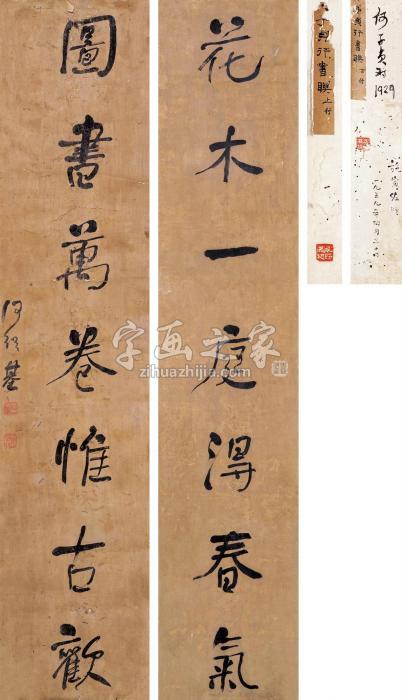 花木一庭得春氣
圖書萬卷惟古歡
何紹基
行書聯上
何子貞對
1929
字画之家
zihuazhijia.com